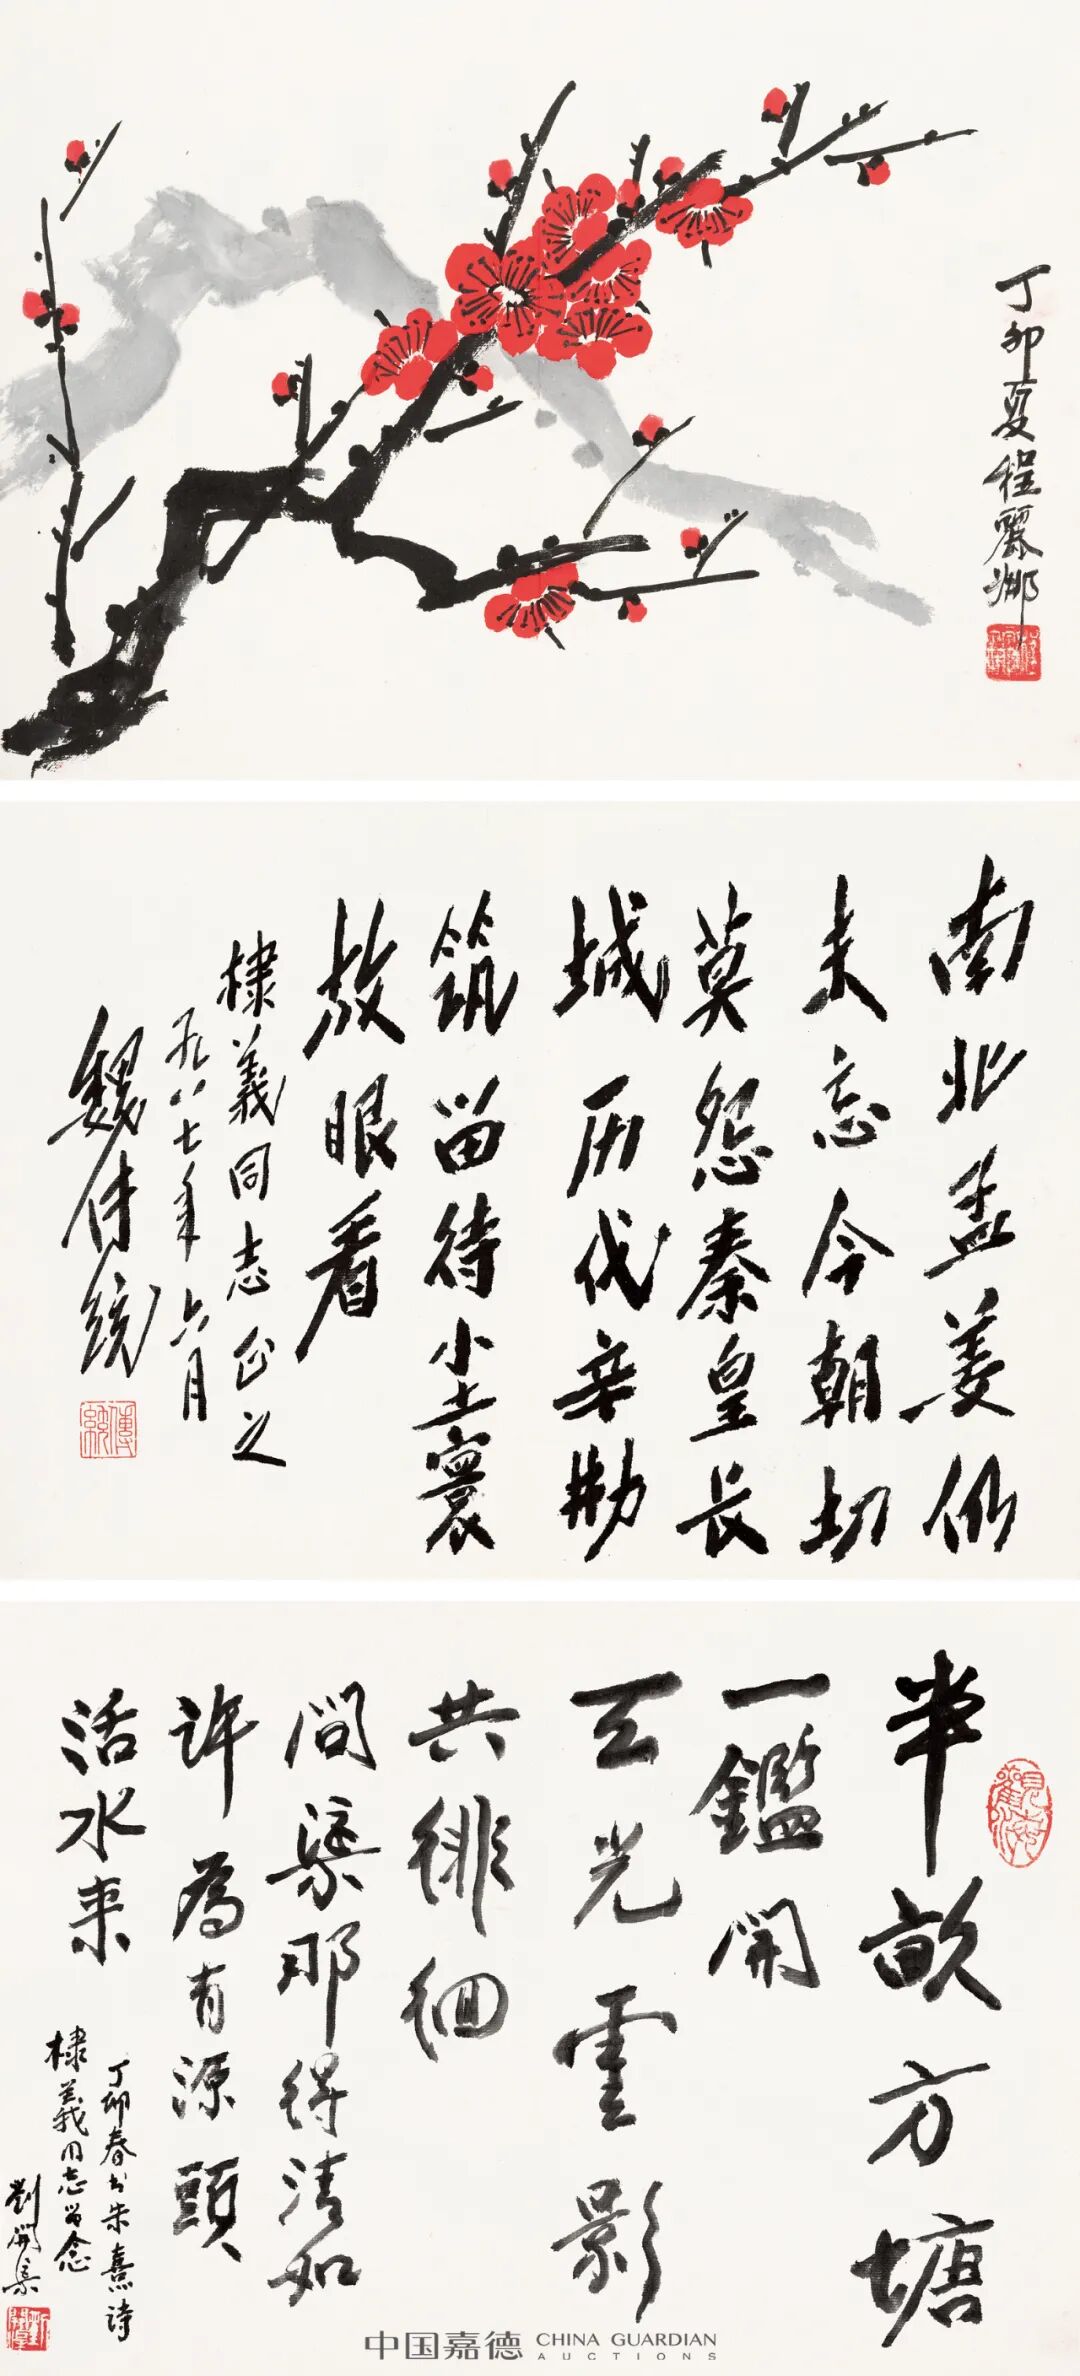 丁卯夏程麗娜
南北孟姜仍
未忘今朝切
莫怨秦皇长
城历代辛勤
筑留待尘寰
放眼看
棣義同志正之
一九八七年六月
魏传统
傳統
半畝方塘
一鑑開
天光雲影
共徘徊
问渠那得清如
许為有源頭
活水来
丁卯春书朱熹诗
棣義同志留念
劉開渠
中国嘉德 CHINA GUARDIAN AUCTIONS